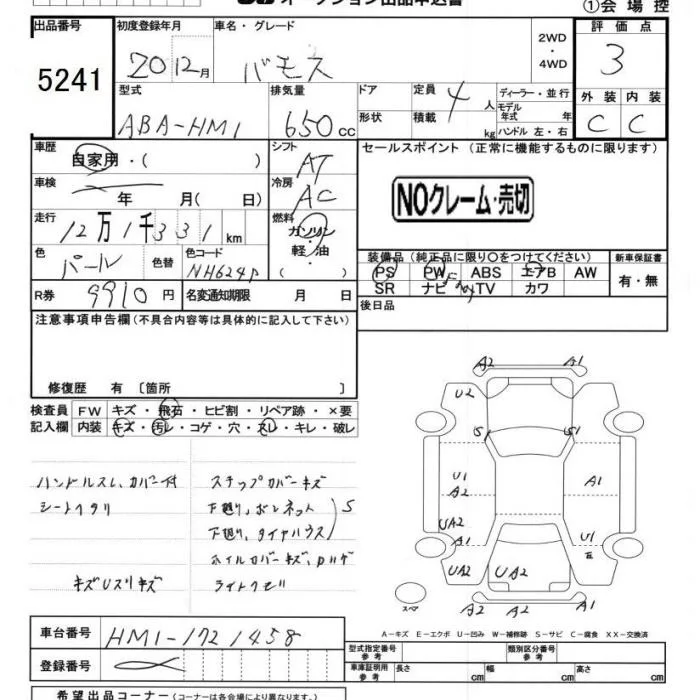 オークション出品申込書
①会場控
出品番号 初度登録年月 車名・グレード 評価点
5241 20 12月 バモス 2WD・4WD 3
型式 排気量 ドア 定員 ディーラー・並行 外装 内装
ABA-HM1 650cc 4人 モデル年式 年 C C
形状 積載 kg ハンドル 左・右
車歴 シフト セールスポイント (正常に機能するものに限ります)
自家用・( ) AT
車検 年 月( 日) 冷房 AC NOクレーム・売切
走行 12万1千331km 燃料 ガソリン・軽油
色 パール 色替 色コード NH624P
装備品(純正品に限り○をつけてください) 新車保証書
PS PW ABS エアB AW 有・無
SR ナビ TV カワ
R券 9910円 名変通知期限 月 日 後日品
注意事項申告欄(不具合内容等は具体的に記入して下さい)
修復歴 有 [箇所 ]
検査員 FW キズ・飛石・ヒビ割・リペア跡・×要
記入欄 内装 キズ・汚レ・コゲ・穴・スレ・キレ・破レ
ハンドルスレ、カバー付 ステップカバーキズ
シートヘタリ 下廻り、ボンネット
下廻り、タイヤハウス S
ホイルカバーキズ、ハゲ
キズUスリキズ ライトクモリ
A2 A1
U2
S1 S1
U1
A2 A1
UA2 U1
E
UA2 UA2
スペア
A2 A1
A-キズ E-エクボ U-凹み W-補修跡 S-サビ C-腐食 XX-交換済
車台番号 HM1-1721458
登録番号
型式指定番号 参考 類別区分番号 参考
車庫証明用 参考 長さ cm 幅 cm 高さ cm
希望出品コーナー(コーナーは各会場により異なります)